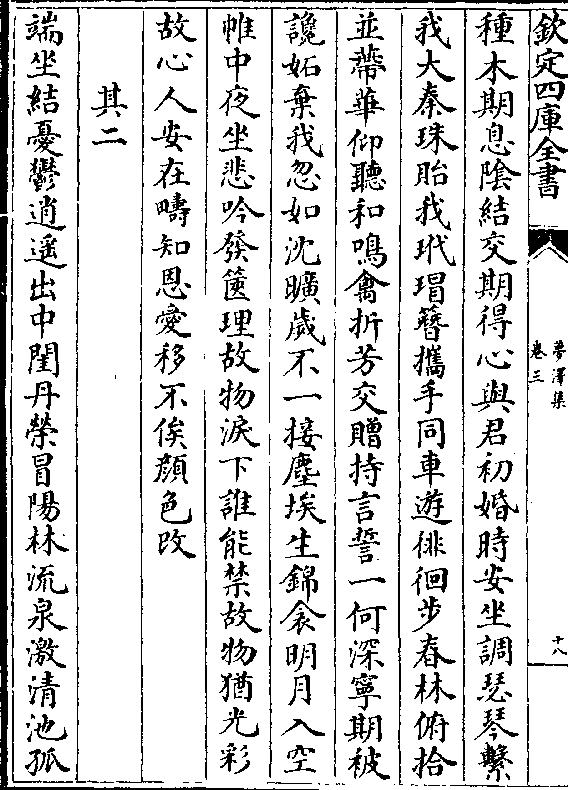 欽定四庫全書
夢澤集
卷三
十八
種木期息陰結交期得心與君初婚時安坐調瑟琴繫
我大秦珠貽我玳瑁簪攜手同車遊徘徊步春林俯拾
並蔕華仰聽和鳴禽折芳交贈持言誓一何深寧期被
讒妬棄我忽如沈曠歲不一接塵埃生錦衾明月入空
帷中夜坐悲吟發篋理故物淚下誰能禁故物猶光彩
故心人安在疇知恩愛移不俟顔色改
其二
端坐結憂鬱逍遥出中閨丹榮冒陽林流泉激清池孤